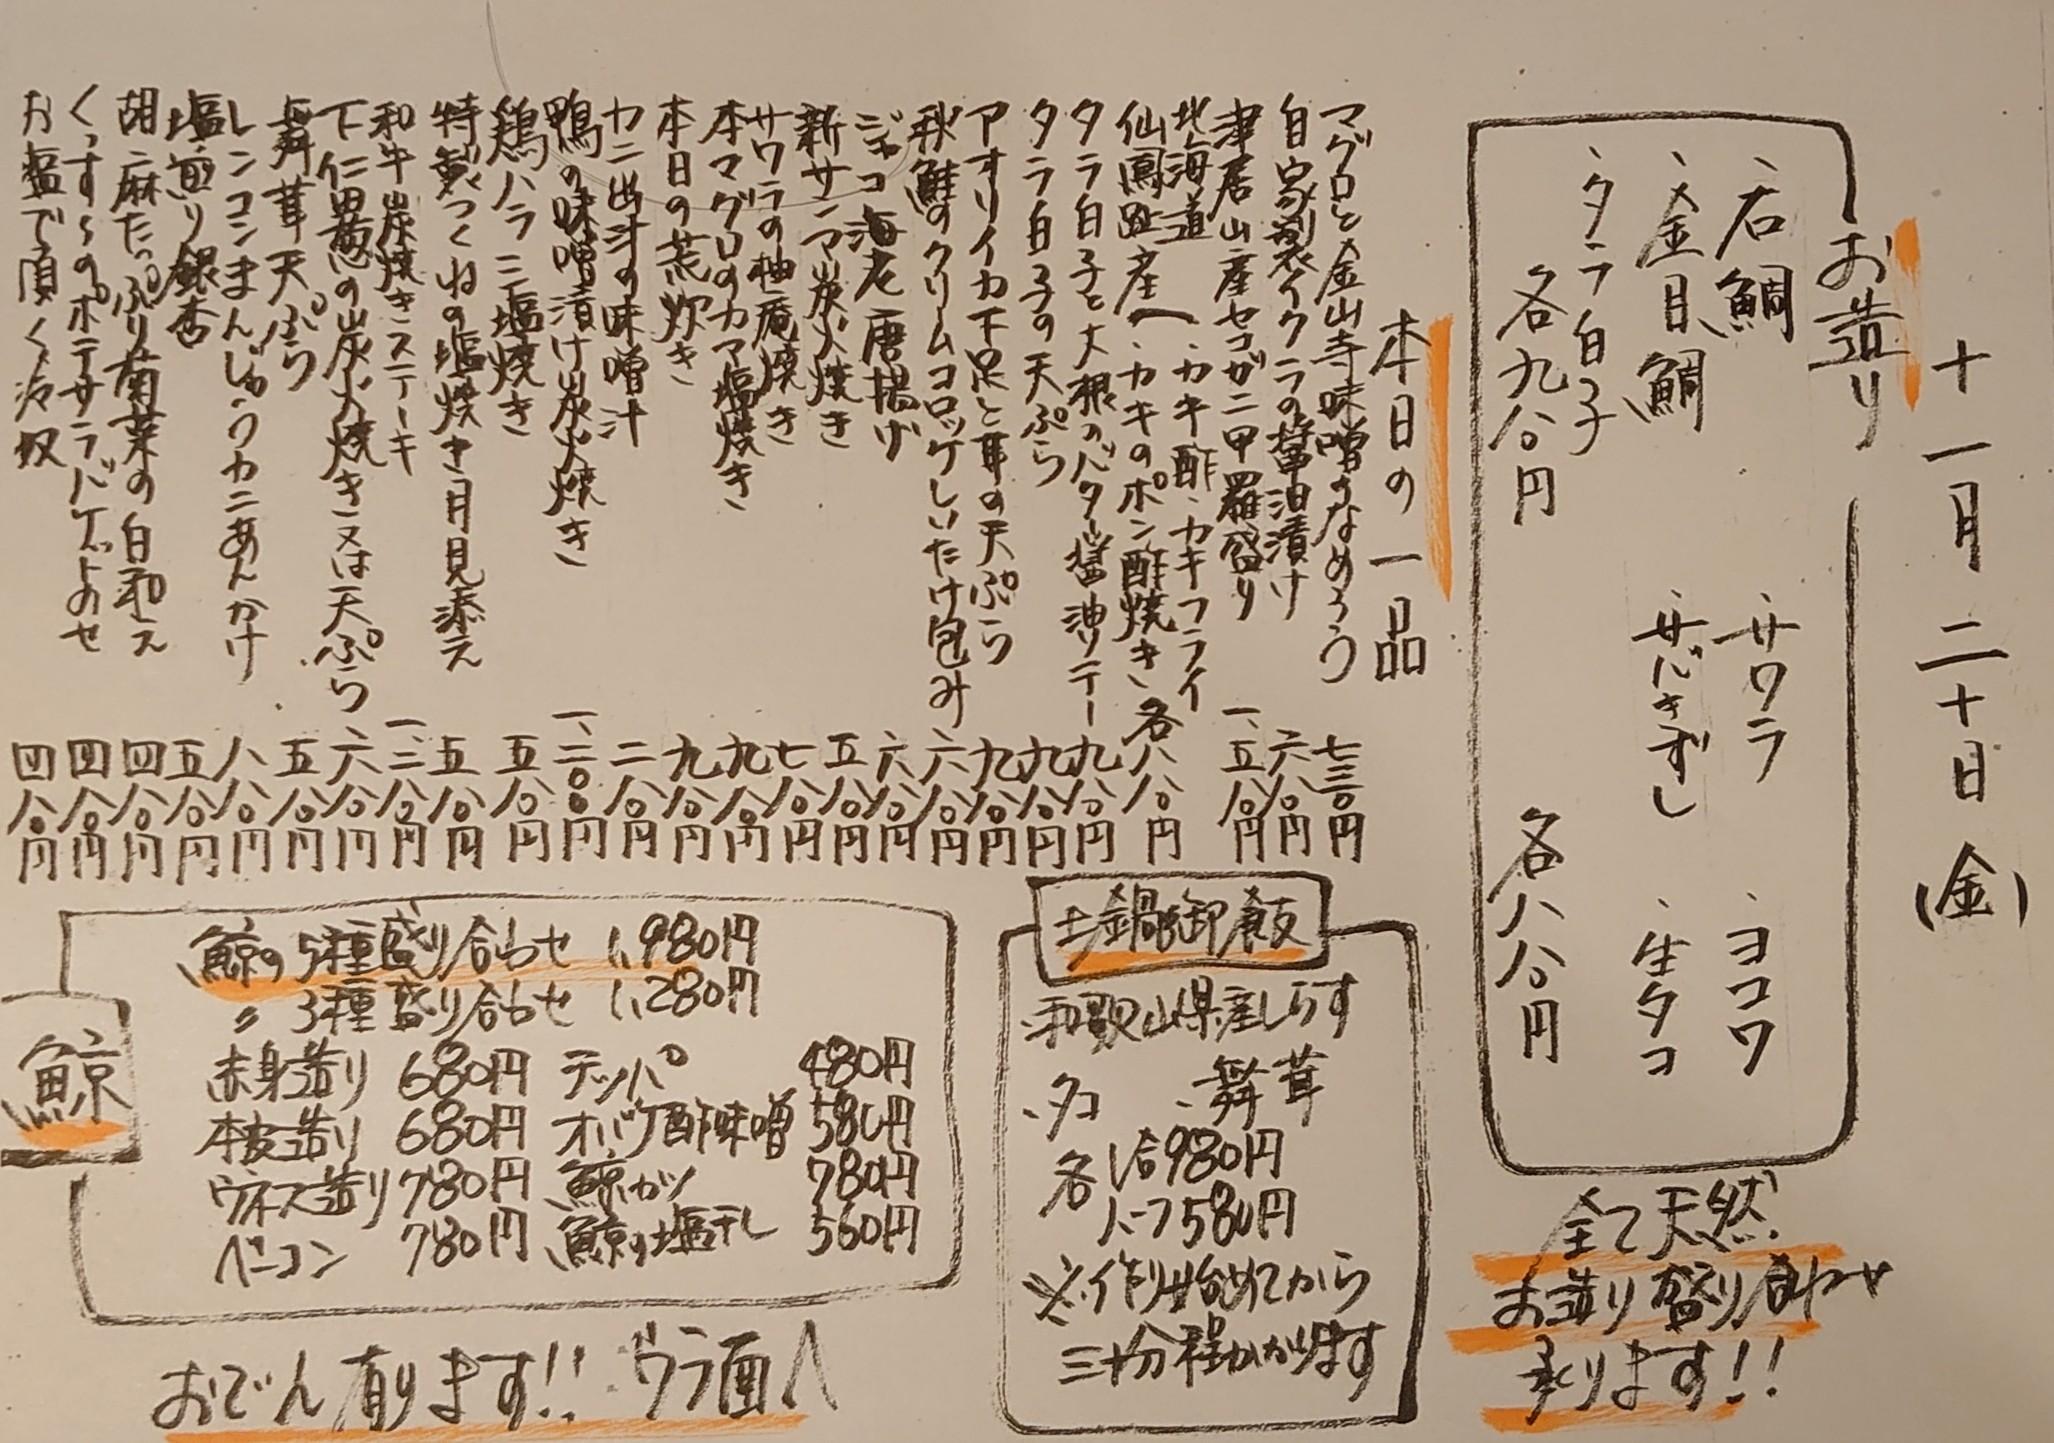 十一月二十日(金)
お造り
、石鯛 、サワラ 、ヨコワ
、金目鯛 、サバきずし 、生タコ
、タラ白子
各九八〇円 各八八〇円
全て天然
お造り盛り合わせ
承ります!!
本日の一品
マグロと金山寺味噌のなめろう 七三〇円
自家製イクラの醤油漬け 六八〇円
津居山産セコガニ甲羅盛り 一、五八〇円
北海道 へ、カキ酢、カキフライ
仙鳳趾産 、カキのポン酢焼き、各八八〇円
タラ白子と大根のバター醤油ソテー 九八〇円
タラ白子の天ぷら 九八〇円
アオリイカ下足と耳の天ぷら 九八〇円
秋鮭のクリームコロッケしいたけ包み 六八〇円
ジャコ海老唐揚げ 六八〇円
新サンマ炭火焼き 五八〇円
サワラの柚庵焼き 七八〇円
本マグロのカマ塩焼き 九八〇円
本日の荒炊き 九八〇円
カニ出汁の味噌汁 二八〇円
鴨の味噌漬け炭火焼き 一、二〇〇円
鶏ハラミ塩焼き 五八〇円
特製つくねの塩焼き月見添え 五八〇円
和牛炭焼きステーキ 一、三八〇円
下仁田葱の炭火焼き又は天ぷら 六八〇円
舞茸天ぷら 五八〇円
レンコンまんじゅうカニあんかけ 八八〇円
塩煎り銀杏 五八〇円
胡麻たっぷり菊菜の白和え 四八〇円
くっすーのポテサラバゲットのせ 四八〇円
お塩で頂く冷奴 四八〇円
土鍋御飯
、和歌山県産しらす
、タコ 、舞茸
各1合980円
ハーフ580円
※作り始めてから
三十分程かかります
鯨
鯨の5種盛り合わせ 1,980円
〃 3種盛り合わせ 1,280円
赤身造り 680円 テッパ 480円
本皮造り 680円 オバケ酢味噌 580円
ウネス造り 780円 鯨カツ 780円
ベーコン 780円 鯨の塩干し 560円
おでん有ります!! ウラ面へ